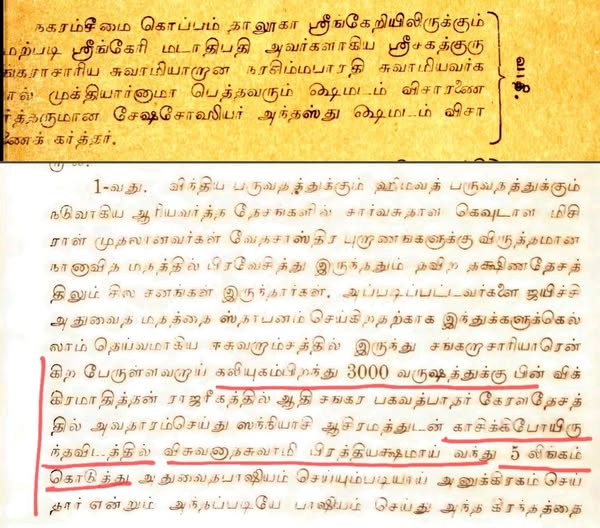 நகரம்சீமை கொப்பம் தாலூகா ஸ்ரீங்கேறியிலிருக்கும்
மற்படி ஸ்ரீங்கேரி மடாதிபதி அவர்களாகிய ஸ்ரீசகத்குரு
ங்கராசாரிய சுவாமியாறான நரசிம்மபாரதி சுவாமியவர்க
ால் முக்தியார்னாமா பெத்தவரும் க்ஷெமடம் விசாரணை
ர்த்தருமான சேஷசோஸியர் அந்தஸ்து க்ஷெமடம் விசா
ணைக் கர்த்தர்.
வாதி.
1-வது. விந்திய பருவதத்துக்கும் ஹிமவத் பருவதத்துக்கும்
நடுவாகிய ஆரியவர்த்த தேசங்களில் சார்வசுதாள கெவுடாள மிசி
ராள் முதலானவர்கள் வேதசாஸ்திர புறாணங்களுக்கு விருத்தமான
நானாவித மதத்தில் பிரவேசித்து இருந்ததும் தவிற தக்ஷிணதேசத்
திலும் சில சனங்கள் இருந்தார்கள். அப்படிப்பட்டவர்களை ஜயிச்சி
அதுவைத மதத்தை ஸ்தாபனம் செய்கிறதற்காக இந்துக்களுக்கெல்
லாம் தெய்வமாகிய ஈசுவறாம்சத்தில் இருந்து சங்கறாசாரியாரென்
கிற பேருள்ளவறாய் கலியுகம்பிறந்து 3000 வருஷத்துக்கு பின் விக்
கிரமாதித்தன் ராஜரீகத்தில் ஆதி சங்கர பகவத்பாதர் கேரளதேசத்
தில் அவதாரம்செய்து ஸந்நியாசி ஆசிரமத்துடன் காசிக்கிபோயிரு
ந்தவிடத்தில் விசுவனாதசுவாமி பிரத்தியக்ஷமாய் வந்து 5 லிங்கம்
கொடுத்து அதுவைதபாஷியம் செய்யும்படியாய் அனுக்கிரகம் செய்
தார் என்றும் அந்தப்படியே பாஷியம் செய்து அந்த கிரந்தத்தை